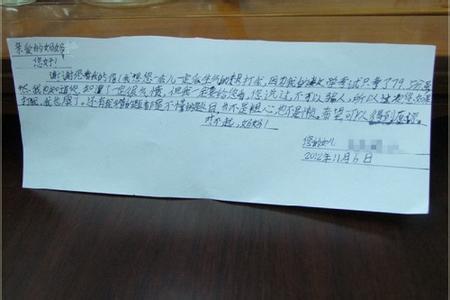 亲爱的妈妈
您好!
谢谢您看我的信(我想您一会儿一定会生气的揍打我,因为我的数学考试只考了79.5分虽
然,我也知道您,知道了一定很失望,但我一定要给您看,您说过,不可以骗人,所以
打我,我也愿了。还有我错的题都是不懂的题目,不是粗心,也不是慢。希望可以得到原谅。
对不起,妈妈!
您的女儿
2012年11月6日